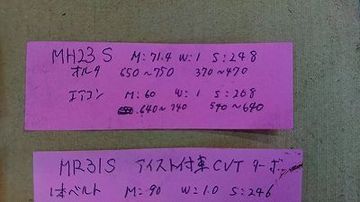 MH23S M:71.4 W:1 S:248
オルタ 650~750 370~470
エアコン M:60 W:1 S:268
640~740 540~640
MR31S アイスト付車CVTターボ
1本ベルト M:90 W:1.0 S:246